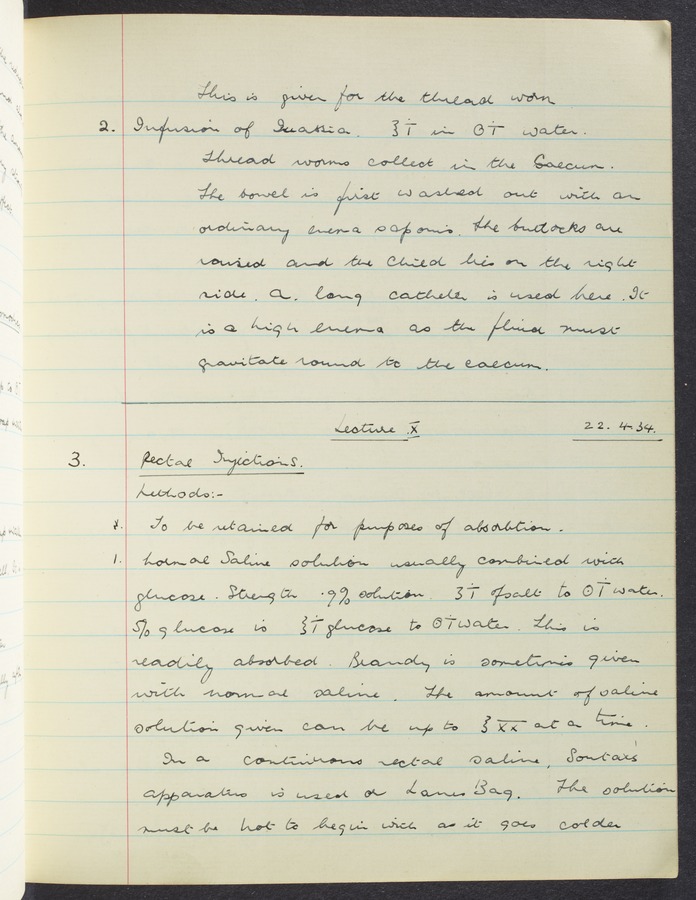 This is given for the thread worm
2. Infusion of Quassia. ℥ṫ in Oṫ water.
Thread worms collect in the Caecum.
The bowel is first washed out with an
ordinary enema saponis. The buttocks are
raised and the child lies on the right
side. A. long catheter is used here. It
is a high enema as the fluid must
gravitate round to the caecum.
Lecture X 22.4.34.
3. Rectal Injections.
Methods:-
To be retained for purposes of absorbtion.
1. Normal Saline solution usually combined with
glucose. Strength ·9% solution. ʒṫ of salt to Oṫ water.
5% glucose is ℥ṫ glucose to Oṫ water. This is
readily absorbed. Brandy is sometimes given
with normal saline. The amount of saline
solution given can be up to ℥xx at a time.
In a continuous rectal saline,
apparatus is used or Lanes Bag. The solution
must be hot to begin with as it goes colder